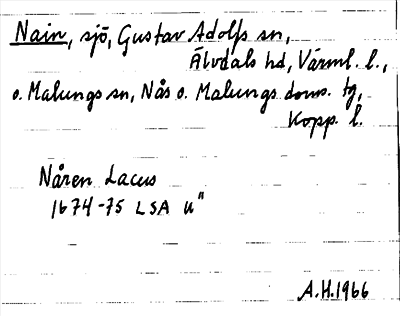 Nain, sjö, Gustav Adolfs sn,
Älvdals hd, Värml. l.,
o. Malungs sn, Nås o. Malungs doms. tg,
Kopp. l.
Nåren Lacus
1674-75 LSA U"
A.H. 1966